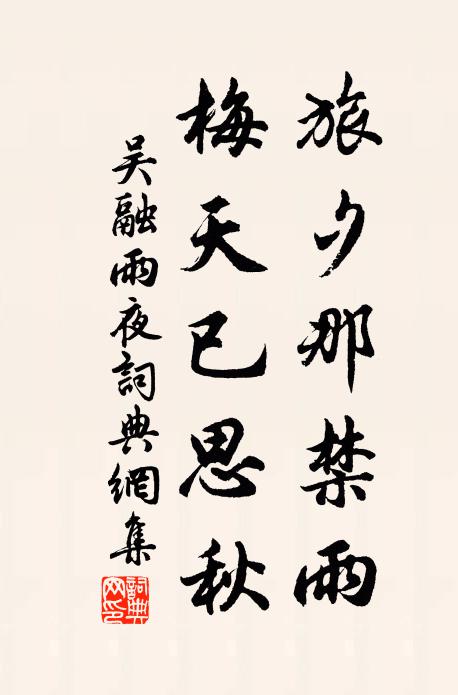 旅夕那禁雨
梅天已思秋
吴融雨夜詞典網集
詞典网印